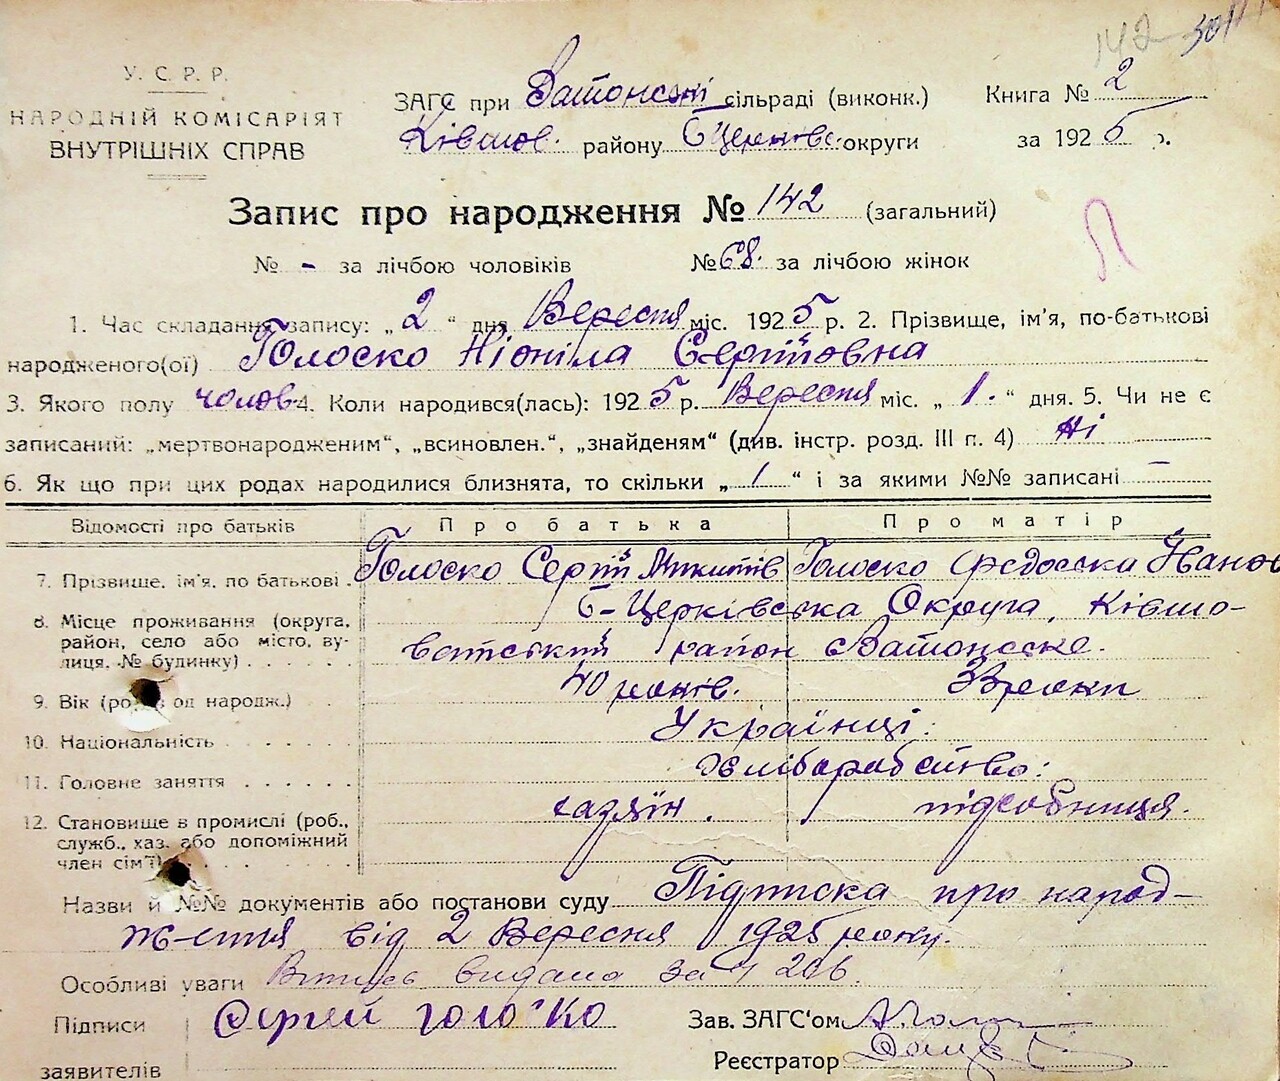 142
У. С. Р. Р.
НАРОДНІЙ КОМІСАРІЯТ
ВНУТРІШНІХ СПРАВ
ЗАГС при сільраді (виконк.)
Ківшов. району Б Церковс. округи
Книга № 2
за 1925 р.
Запис про народження № 142 (загальний)
№ - за лічбою чоловіків № 68. за лічбою жінок
1. Час складання запису: „ 2 “ дня Вересня міс. 1925 р. 2. Прізвище, ім'я, по-батькові
народженого(ої) Голоско Ніоніла Сергіївна
3. Якого полу чолов 4. Коли народився(лась): 1925 р. Вересня міс. „ 1. “ дня. 5. Чи не є
записаний: „мертвонародженим“, „всиновлен.“, „знайденям“ (див. інстр. розд. III п. 4) Ні
6. Як що при цих родах народилися близнята, то скільки „ 1 “ і за якими №№ записані —
Відомості про батьків Про батька Про матір
7. Прізвище, ім'я, по батькові . Голоско Сергій Микитів Голоско Федосска Іванов
8. Місце проживання (округа, район, село або місто, вулиця, № будинку) . . . . . Б-Церківська Округа, Ківшо-
ватський район
9. Вік (років од народж.) . 40 років.
10. Національність . . . . . . Українці.
11. Головне заняття . . . . . . хліборобство:
12. Становище в промислі (роб., служб., хаз. або допоміжний член сім'ї) . . . . . . хазяїн. підсобниця.
Назви й №№ документів або постанови суду Підписка про народ-
ження від 2 Вересня 1925 року.
Особливі уваги Витись видано за ч 206
Підписи заявителів Сергей Голоско
Зав. ЗАГС'ом
Реєстратор